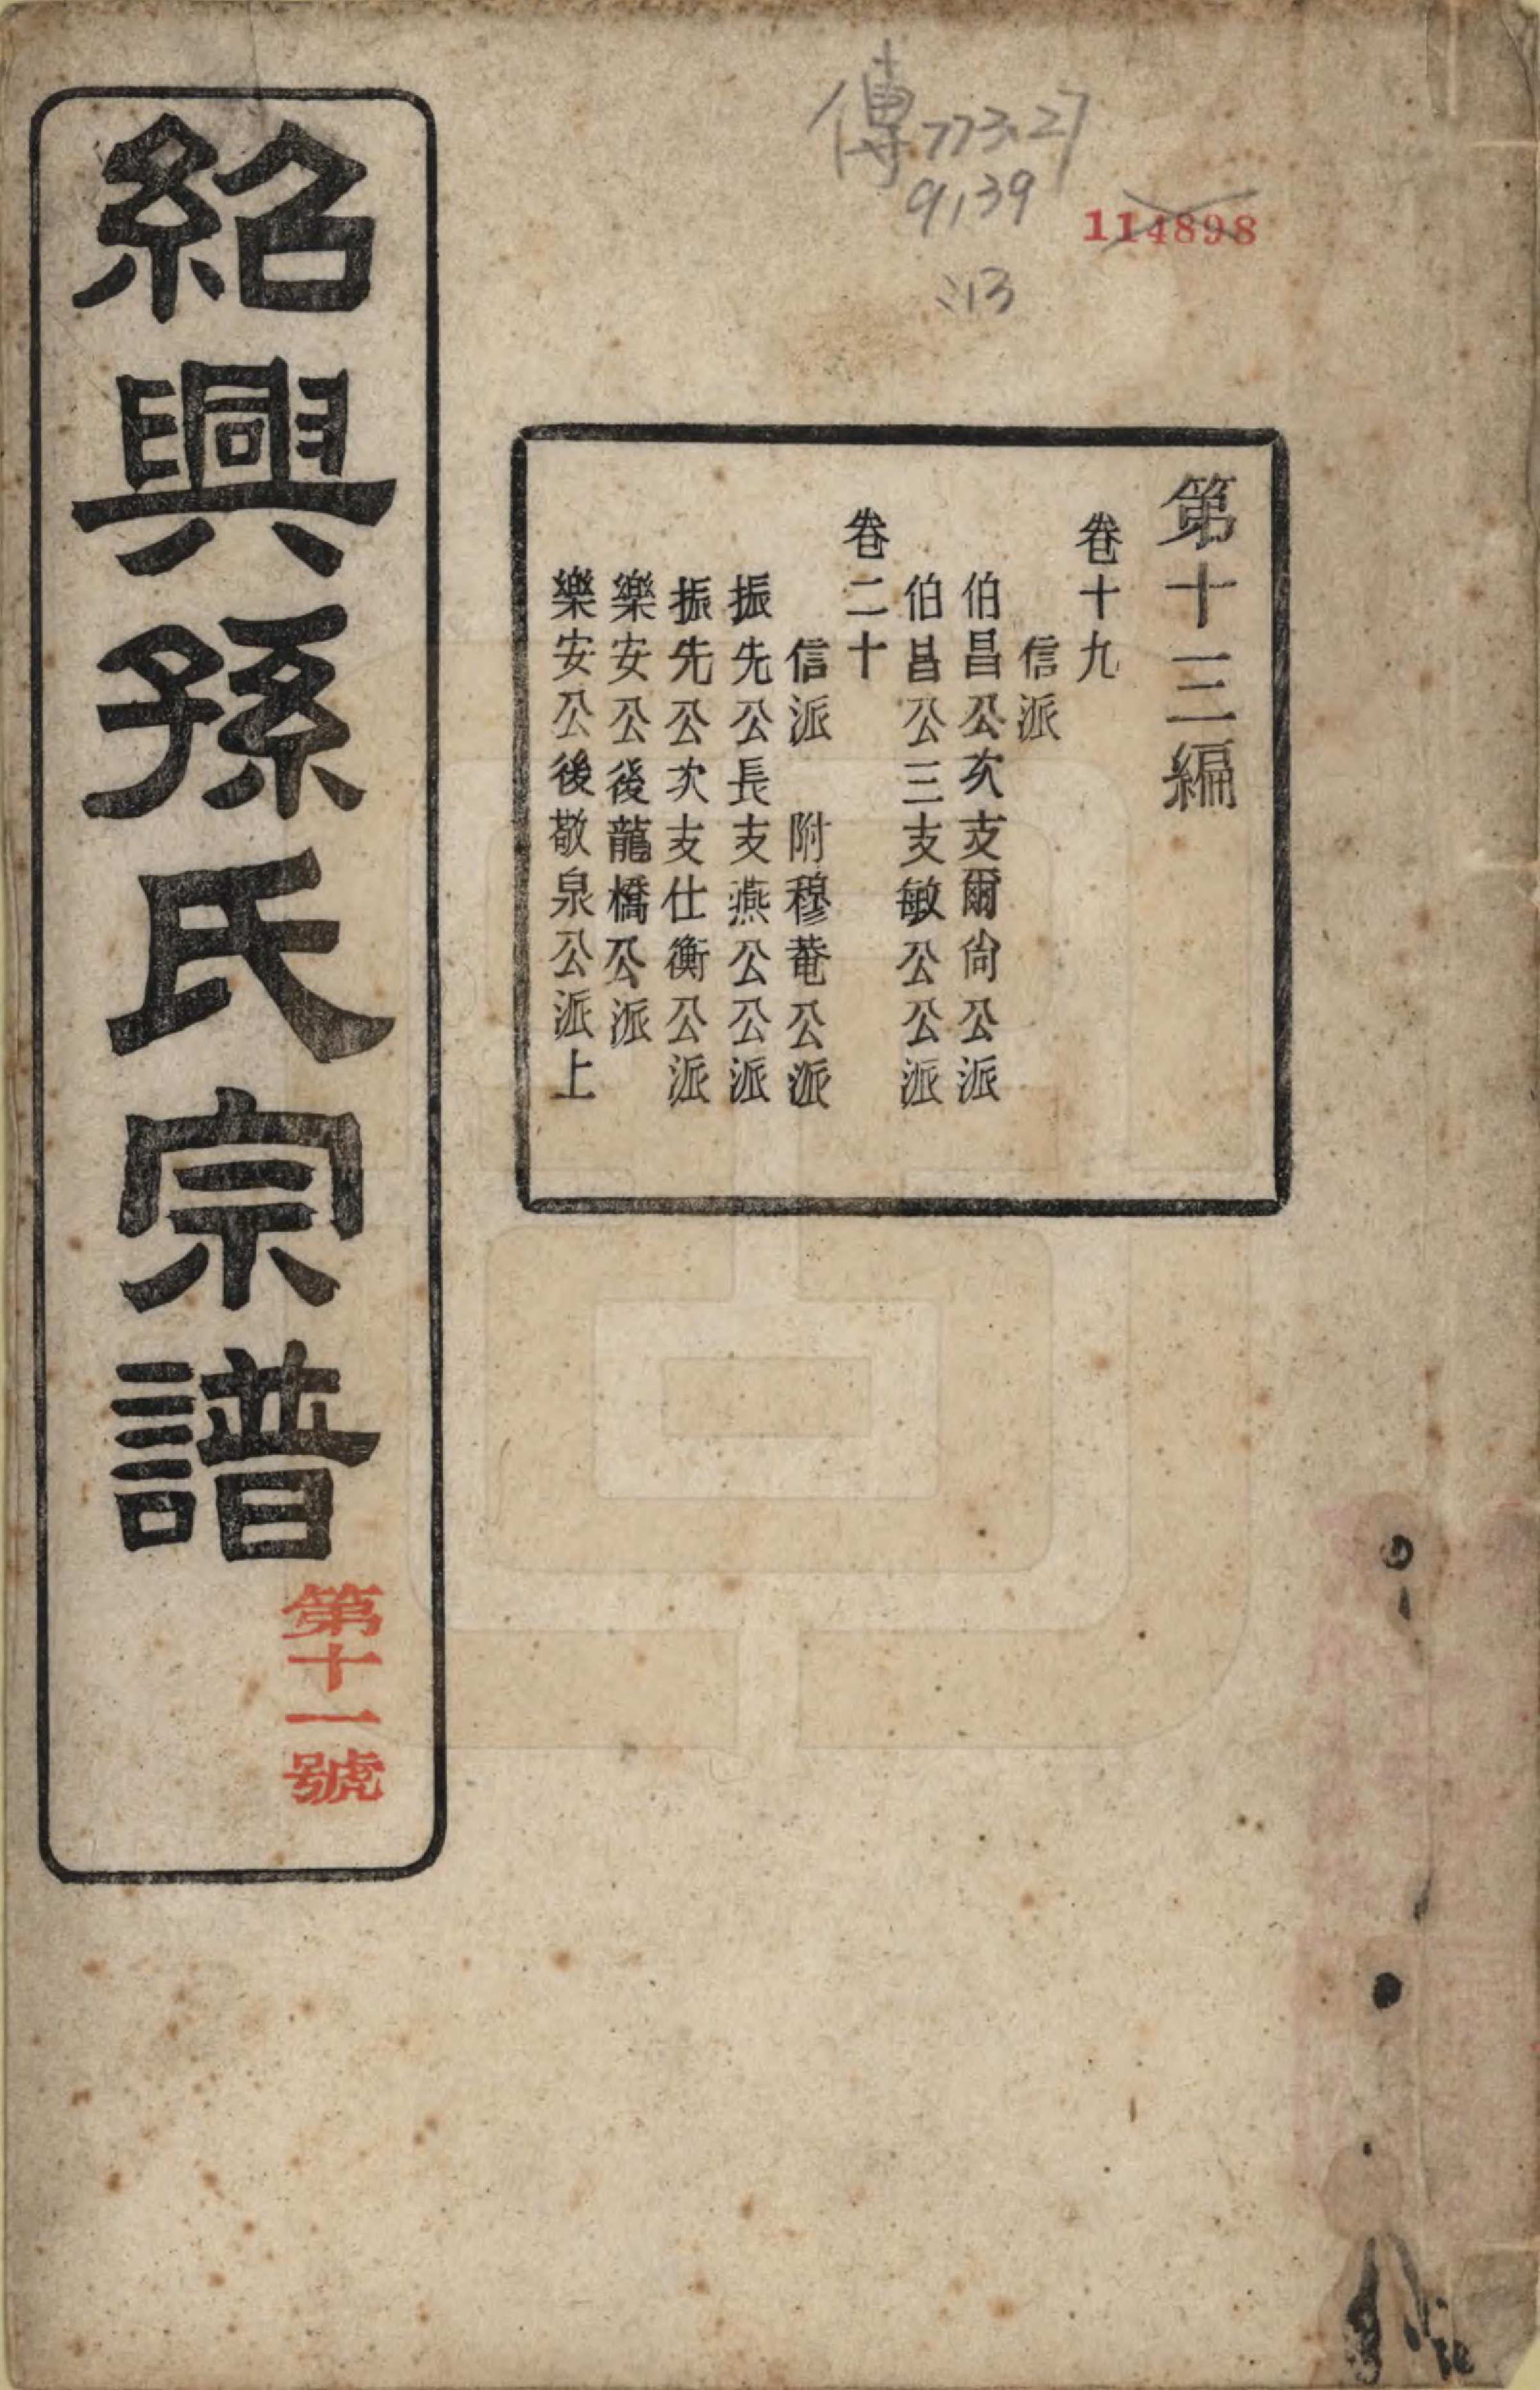 傳773.27
9139
:13
114898
第十三編
卷十九
信派
伯昌公次支爾尙公派
伯昌公三支敏公公派
卷二十
信派 附穆菴公派
振先公長支燕公公派
振先公次支仕衡公派
樂安公後龍橋公派
樂安公後敬泉公派上
紹興孫氏宗譜
第十一號